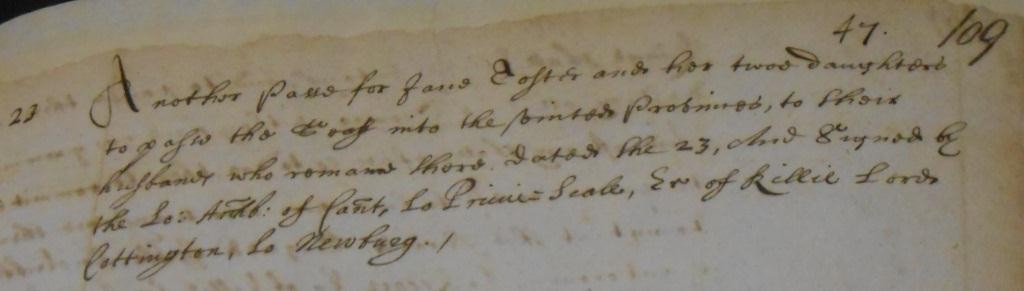 47. 109
23 Another passe for Jane Coster and her twoe daughters
to passe the Seas into the vnited Provinces, to their
husband who remaine there. dated the 23, And Signed by
the Lo: Archb: of Cant, Lo Privie=Seale, Er of Kellie Lord
Cottington, Lo Newburg. /